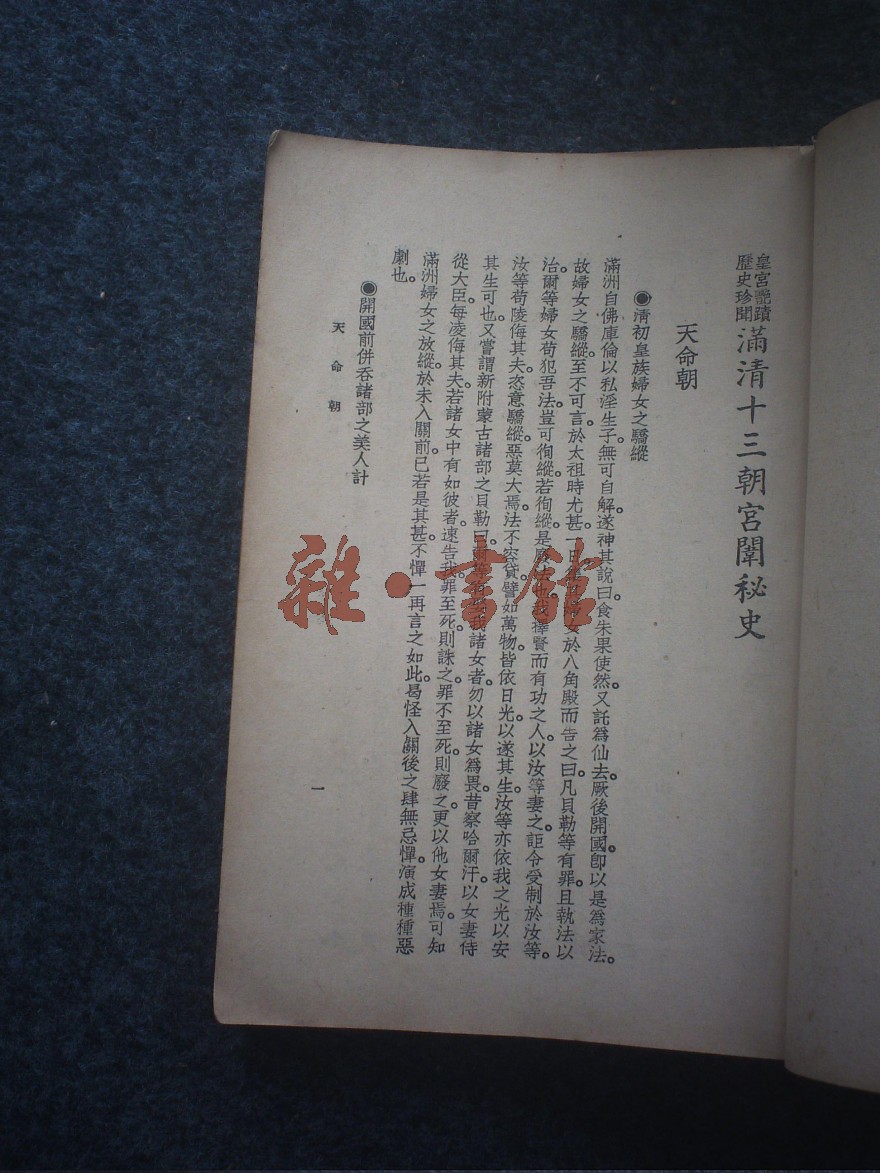 皇宮艷蹟
歷史珍聞
滿清十三朝宮闈秘史
天命朝
◉清初皇族婦女之驕縱
滿洲自佛庫倫以私淫生子。無可自解。遂神其說曰。食朱果使然。又託爲仙去。厥後開國。卽以是爲家法。
故婦女之驕縱。至不可言。於太祖時尤甚。一日。婦女於八角殿而告之曰。凡貝勒等有罪。且執法以
治。爾等婦女苟犯吾法。豈可徇縱。若徇縱。是廢法也。我擇賢而有功之人。以汝等妻之。詎令受制於汝等。
汝等苟陵侮其夫。恣意驕縱。惡莫大焉。法不容貸。譬如萬物。皆依日光以遂其生。汝等亦依我之光以安
其生可也。又嘗謂新附蒙古諸部之貝勒曰。爾等我諸女者。勿以諸女爲畏。昔察哈爾汗。以女妻侍
從大臣。每凌侮其夫。若諸女中有如彼者。速告我。罪至死。則誅之。罪不至死。則廢之。更以他女妻焉。可知
滿洲婦女之放縱。於未入關前。已若是其甚。不憚一再言之如此。曷怪入關後之肆無忌憚。演成種種惡
劇也。
◉開國前併吞諸部之美人計
天命朝
一
雜·書館